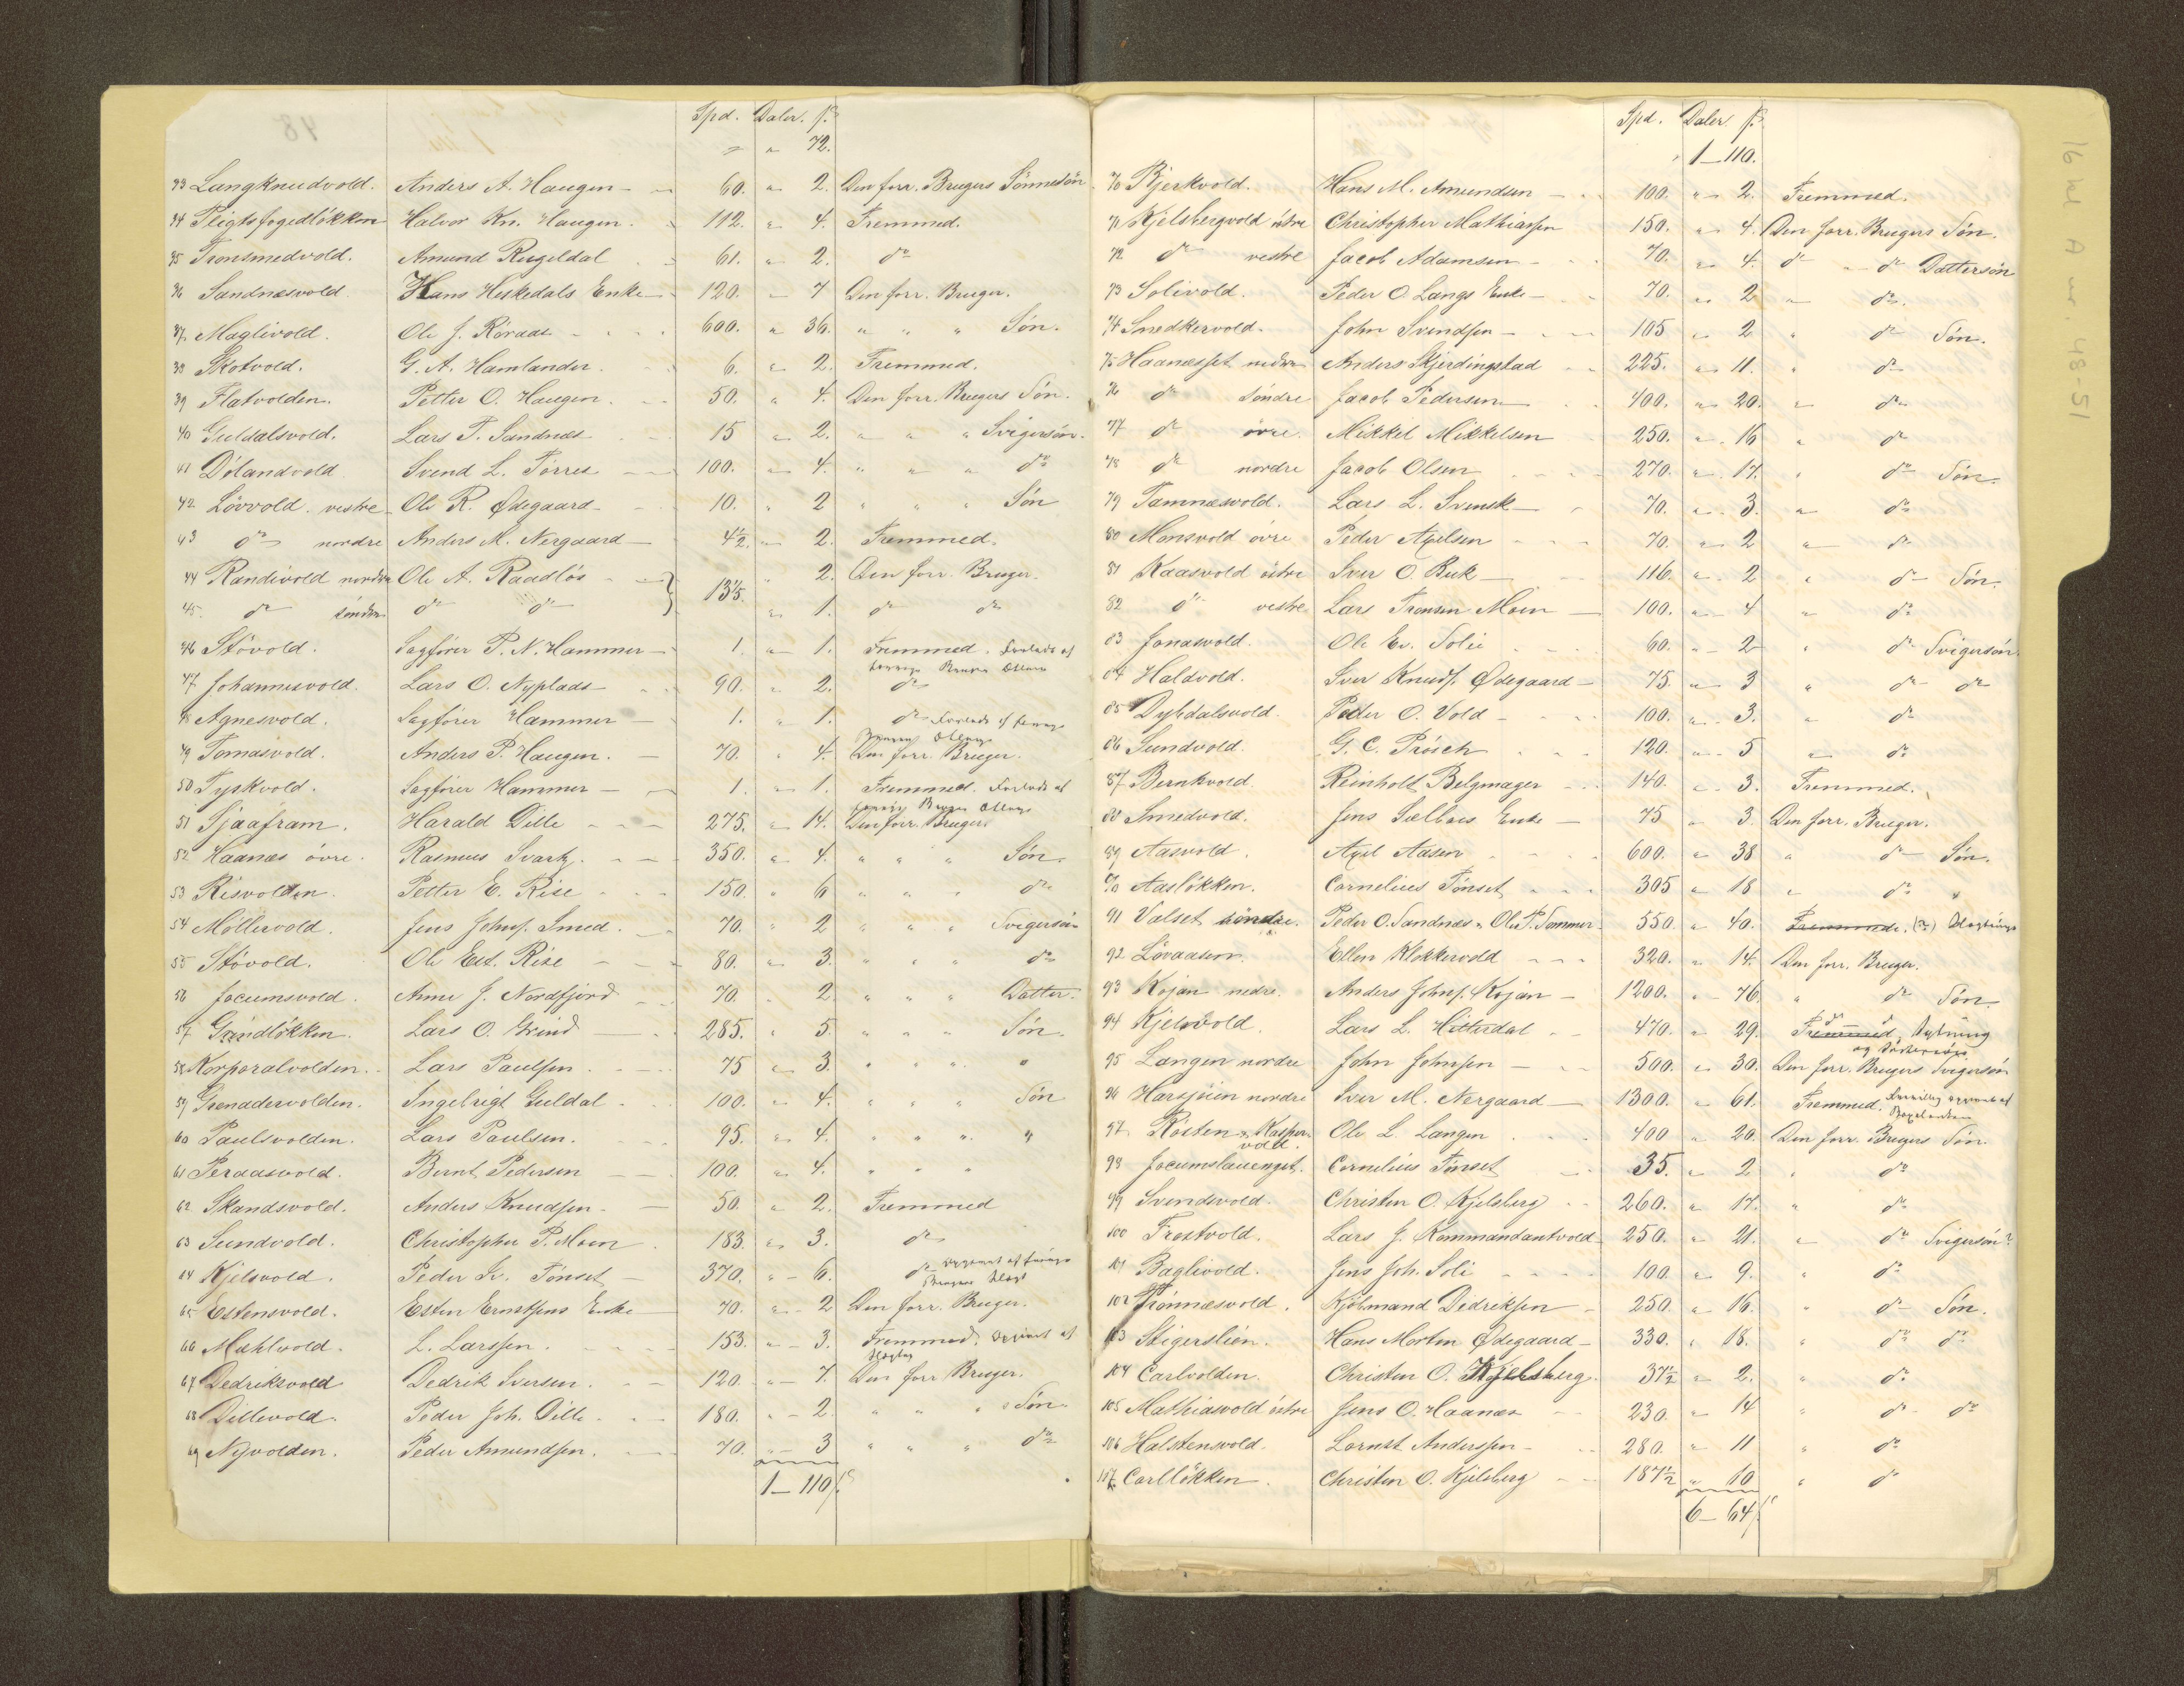 Spd. Daler. ß
" " 72.
33 Langknudvold. Anders A. Haugen 60. " 2. Den forr. Brugers Sönnesön
34 Pligtsfogedlökken Halvor Kn. Haugen. 112. " 4. Fremmed.
35 Tronsmedvold. Amund Rugeldal 61. " 2. do
36 Sandnæsvold. Hans Heskedals Enke 120. " 7 Den forr. Bruger.
37 Maglivold. Ole J. Röraas 600. " 36. " " " Sön.
38 Skotvold. G. A. Hamlander. 6. " 2. Fremmed.
39 Flatvolden. Petter O. Haugen. 50. " 4. Den forr. Brugers Sön.
40 Guldalsvold. Lars T. Sandnæs 15 " 2. " " " Svigersön.
41 Dölandvold Svend L. Törres 100. " 4. " " " do
42 Lövvold. vestre Ole R. Ødegaard 10. " 2 " " " Sön
43 do nordre Anders M. Nergaard 4½. " 2. Fremmed.
44 Randivold nordre Ole A. Raadlös } 135. " 2. Den forr. Bruger.
45. do söndre do do " 1. do do
46 Stövold. Sagförer P. N. Hammer 1. " 1. Fremmed. Forladt af
forrige Bruger
47 Johannesvold. Lars O. Nyplads 90. " 2. do
48 Agnesvold. Sagförer Hammer 1. " 1. do Forladt af forrige
49 Tomasvold. Anders P. Haugen. 70. " 4. Den forr. Bruger.
50 Tyskvold. Sagförer Hammer 1. " 1. Fremmed. Forladt af
forrige Bruger
51 Sjaafram. Harald Dille 275. " 14. Den forr. Bruger.
52 Haanæs övre. Rasmus Svartz. 350. " 4. " " " Sön.
53 Risvolden. Petter E. Rise 150. " 6 " " " do
54 Möllervold. Jens Johns. Smed. 70. " 2 " " " Svigersön
55 Stövold. Ole Est. Rise 80. " 3. " " " do
56 Jocumsvold. Anne J. Nordfjord 70. " 2. " " " Datter.
57 Grindlökken. Lars O. Grind 285. " 5. " " " Sön.
58 Korporalvolden. Lars Paulsen. 75 " 3. " " " "
59 Grenadervolden. Ingebrigt Guldal 100. " 4. " " " Sön
60 Paulsvolden. Lars Paulsen. 95. " 4. " " " "
61 Peraasvold. Bernt Pedersen 100. " 4. " " "
62 Skandsvold. Anders Knudsen. 50. " 2. Fremmed
63 Sundvold. Christopher P. Moen 183. " 3. do
64 Kjelsvold. Peder Iv. Tönset 370. " 6. do af forrige
Brugers Slægt
65 Estensvold. Esten Ernstsens Enke 70. " 2 Den forr. Bruger.
66 Mahlvold. L. Larssen. 153. " 3. Fremmed. af
67 Dedriksvold Dedrik Iversen. 120. " 7. Den forr Bruger.
68 Dillevold. Peder Joh. Dille. 180. " 2. " " " Sön.
69 Nyvolden. Peder Amundsen. 70. " 3 " " " do
1 – 110 ß
16 kl A nr. 48-51
Spd. Daler. ß
1 – 110.
70 Bjerkvold. Hans M. Amundsen 100. " 2. Fremmed.
71 Kjelsbergvold östre Christopher Mathiassen 150. " 4. Den forr. Brugers Sön.
72 do vestre Jacob Adamsen 70. " 4. do do Dattersön
73 Solivold. Peder O. Langs Enke 70. " 2 " do.
74 Snedkervold. John Svendsen 105 " 2 " do Sön.
75 Haanæsset nedre Anders Skjerdingstad 225. " 11. " do
76 do söndre Jacob Pedersen 400. " 20. " do
77 do övre. Mikkel Mikkelsen 250. " 16 " do
78 do nordre Jacob Olsen 270. " 17. " do Sön.
79 Tamnæsvold. Lars L. Svensk 70. " 3. " do
80 Monsvold övre Peder Axelsen 70. " 2 " do
81 Kaasvold östre Iver O. Buk 116. " 2 " do Sön.
82 do vestre Lars Tronsen Moen 100. " 4 " do
83 Jonasvold. Ole Ev. Solie 60. " 2 " do Svigersön.
84 Haldvold. Iver Knuds. Ødegaard 75. " 3 " do do
85 Dyhdalsvold. Peder O. Vold 100. " 3. " do
86 Sundvold. G. C. Prösch 120. " 5 " do
87 Berntvold Reinholt Belgmager 140. " 3. Fremmed.
88 Smedvold. Jens Sælbars Enke 75 " 3. Den forr. Bruger.
89 Aasvold. Axel Aasen 600. " 38 " do Sön.
90 Aaslökken. Cornelius Tönset 305 " 18 " do "
91 Valset söndre. Peder O. Sandnæs & Ole P. Sommer 550. " 40. Fremmede. (?) Slægtning
92 Lövaasen. Ellen Klokkervold 320. " 14. Den forr. Bruger.
93 Kojan nedre. Anders Johns. Kojan 1200. " 76. " do Sön
94 Kjelsvold. Lars L. Hitterdal 470. " 29. Fremmed,
do do
og Söstersön
95 Langen nordre John Johnsen 500. " 30. Den forr. Brugers Svigersön
96 Harsjöen nordre Iver M. Nergaard 1300. " 61. Fremmed. af
97 Rösten & Kasper- Ole L. Langen 400 " 20. Den forr. Brugers Sön.
vold.
98 Jocumslauenget. Cornelius Tönset 35. " 2 " do
99 Svendsvold. Christen O. Kjelsberg 260. " 17. " do
100 Frostvold. Lars J. Kommandantvold 250. " 21. " do Svigersön?
101 Baglivold. Jens Joh. Soli 100. " 9. " do
102 Frönnæsvold. Kjölmand Didriksen 250. " 16. " do Sön.
103 Steigerslien. Hans Morten Ødegaard 330. " 18. " do do
104 Carlvolden. Christen O. Kjelsberg. 37½ " 2. " do
105 Mathiasvold östre Jens O. Haanæs 230. " 14 " do do
106 Halstensvold. Lornst Anderssen 280. " 11 " do
107 Carllökken. Christen O. Kjelsberg 187½ " 10 " do
6 – 64 ß